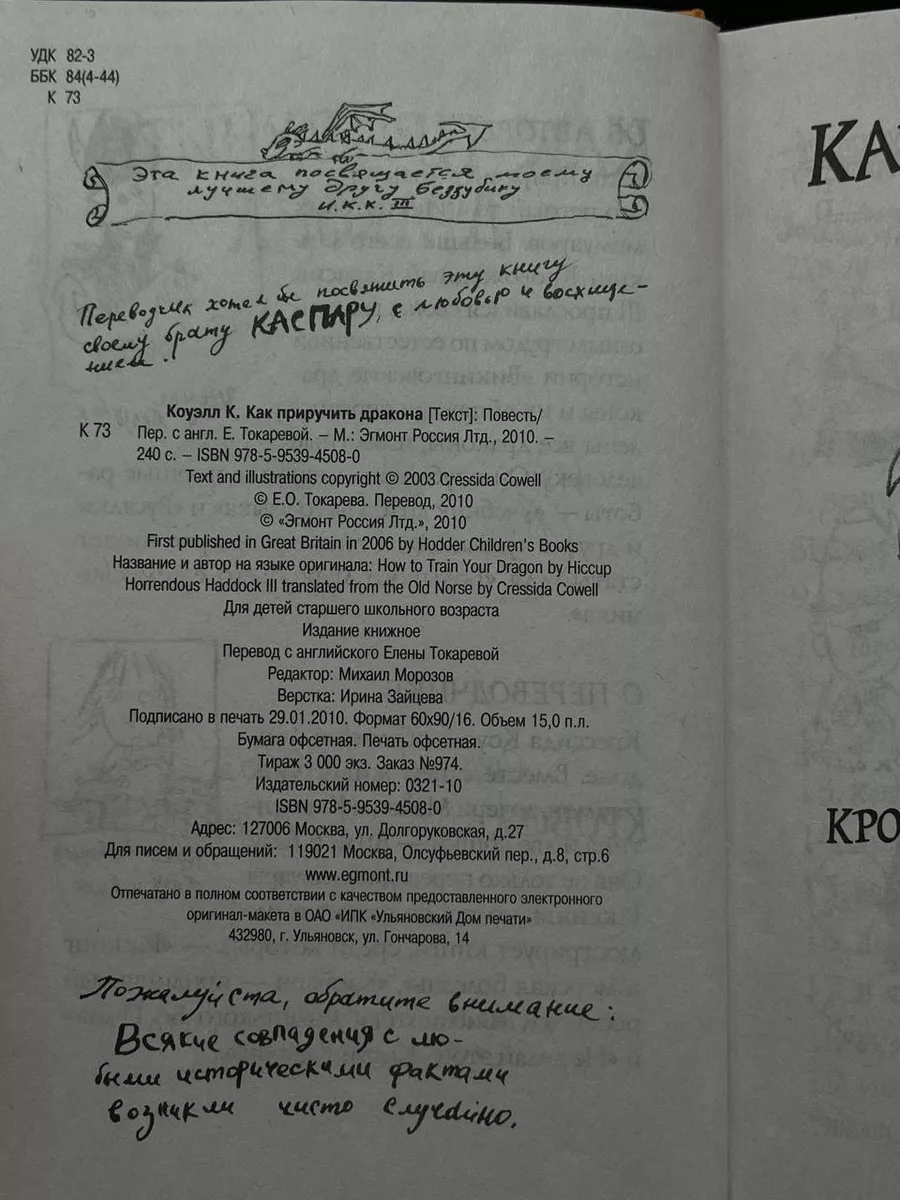 УДК 82-3
ББК 84(4-44)
К 73
Эта книга посвящается моему
лучшему другу Беззубику
И.К.К. III
Переводчик хотел бы посвятить эту книгу
своему брату КАСПАРУ, с любовью и восхище-
нием.
Коуэлл К. Как приручить дракона [Текст]: Повесть/
К 73 Пер. с англ. Е. Токаревой. – М.: Эгмонт Россия Лтд., 2010. –
240 с. – ISBN 978-5-9539-4508-0
Text and illustrations copyright © 2003 Cressida Cowell
© Е.О. Токарева. Перевод, 2010
© «Эгмонт Россия Лтд.», 2010
First published in Great Britain in 2006 by Hodder Children's Books
Название и автор на языке оригинала: How to Train Your Dragon by Hiccup
Horrendous Haddock III translated from the Old Norse by Cressida Cowell
Для детей старшего школьного возраста
Издание книжное
Перевод с английского Елены Токаревой
Редактор: Михаил Морозов
Верстка: Ирина Зайцева
Подписано в печать 29.01.2010. Формат 60х90/16. Объем 15,0 п.л.
Бумага офсетная. Печать офсетная.
Тираж 3 000 экз. Заказ №974.
Издательский номер: 0321-10
ISBN 978-5-9539-4508-0
Адрес: 127006 Москва, ул. Долгоруковская, д.27
Для писем и обращений: 119021 Москва, Олсуфьевский пер., д.8, стр.6
www.egmont.ru
Отпечатано в полном соответствии с качеством предоставленного электронного
оригинал-макета в ОАО «ИПК «Ульяновский Дом печати»
432980, г. Ульяновск, ул. Гончарова, 14
Пожалуйста, обратите внимание:
Всякие совпадения с лю-
быми историческими фактами
возникли чисто случайно.
КА
КРО